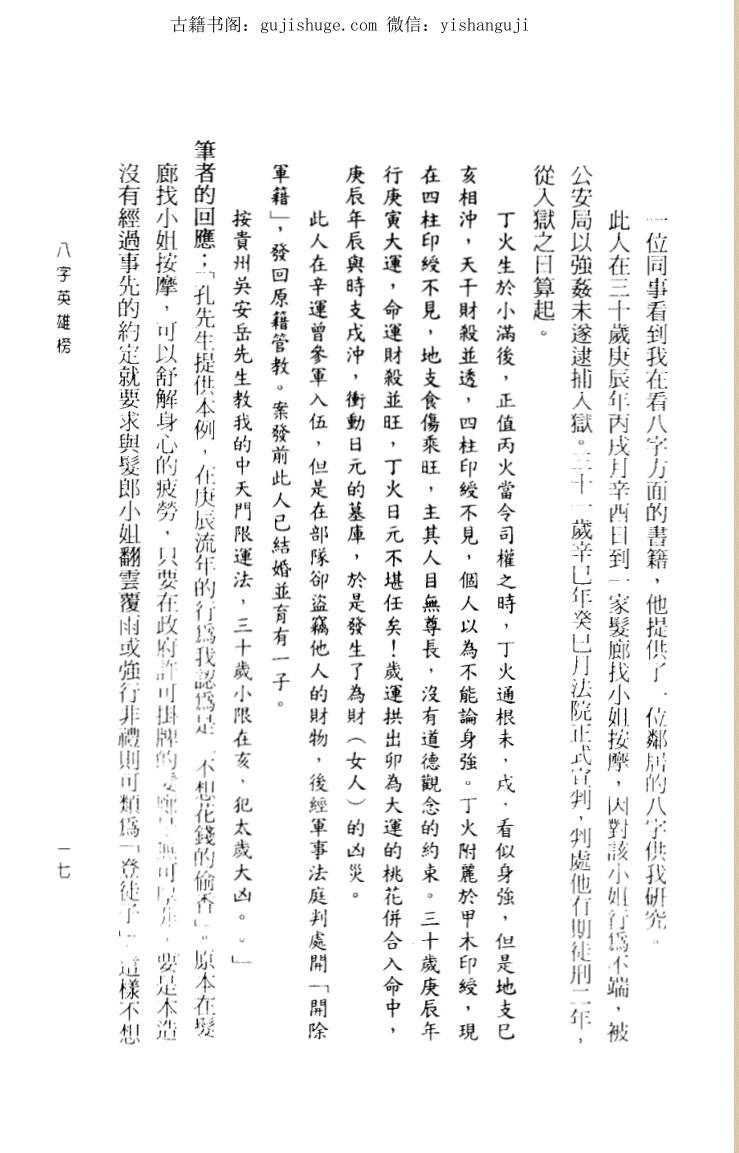 古籍书阁：gujishuge.com 微信：yishanguji
一位同事看到我在看八字方面的書籍，他提供了一位鄰居的八字供我研究。
此人在三十歲庚辰年丙戌月辛酉日到一家髮廊找小姐按摩，因對該小姐行爲不端，被
公安局以強姦未遂逮捕入獄。三十一歲辛巳年癸巳月法院正式宣判，判處他有期徒刑二年，
從入獄之日算起。
丁火生於小滿後，正值丙火當令司權之時，丁火通根未，戌．看似身強，但是地支巳
亥相沖，天干財殺並透，四柱印綬不見，個人以為不能論身強。丁火附麗於甲木印綬，現
在四柱印綬不見，地支食傷乘旺，主其人目無尊長，沒有道德觀念的約束。三十歲庚辰年
行庚寅大運，命運財殺並旺，丁火日元不堪任矣！歲運拱出卯為大運的桃花併合入命中，
庚辰年辰與時支戌沖，衝動日元的墓庫，於是發生了為財（女人）的凶災。
此人在辛運曾參軍入伍，但是在部隊卻盜竊他人的財物，後經軍事法庭判處開「開除
軍籍」，發回原籍管教。案發前此人已結婚並育有一子。
按貴州吳安岳先生教我的中天門限運法，三十歲小限在亥，犯太歲大凶。。」
筆者的回應；「孔先生提供本例，在庚辰流年的行爲我認爲是「不想花錢的偷香」。原本在髮
廊找小姐按摩，可以舒解身心的疲勞，只要在政府許可掛牌的髮廊是無可厚非，要是本造
沒有經過事先的約定就要求與髮郎小姐翻雲覆雨或強行非禮則可類爲「登徒子」，這樣不想
八字英雄榜
一七